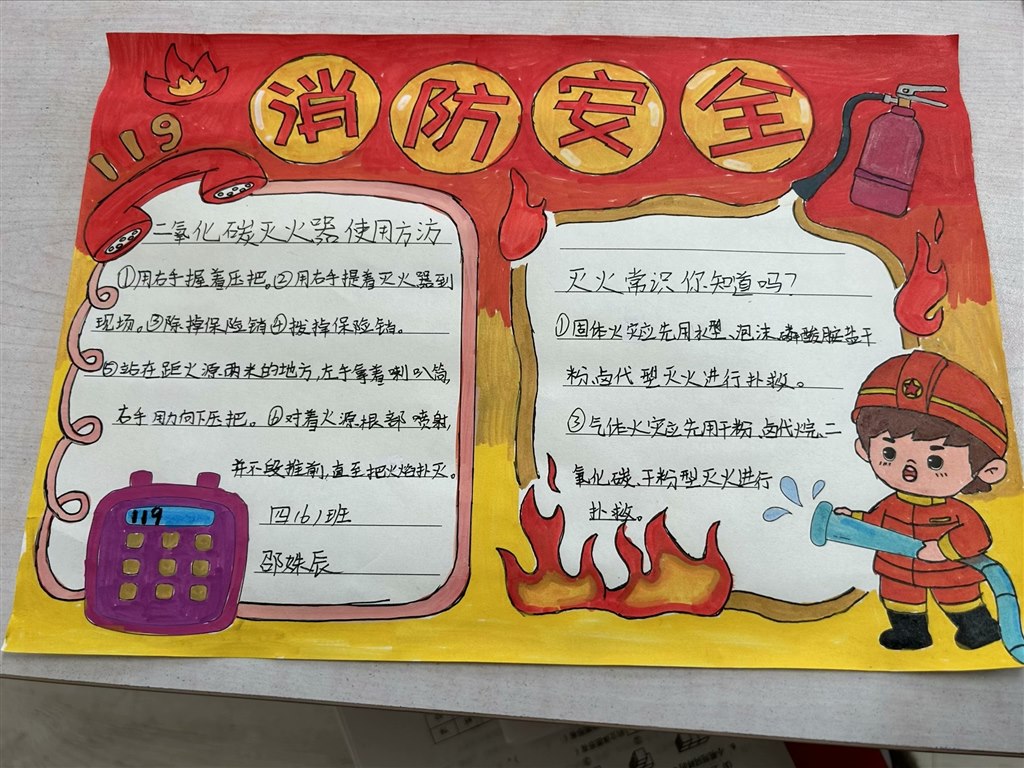 消防安全
119
二氧化碳灭火器使用方法
①用右手握着压把。②用右手提着灭火器到
现场。③除掉保险销④拔掉保险销。
⑤站在距火源两米的地方,左手拿着喇叭筒,
右手用力向下压把。⑥对着火源根部喷射,
并不段推前,直至把火焰扑灭。
四161班
邵姝辰
119
灭火常识你知道吗?
①固体火灾应先用水型、泡沫、磷酸胺盐干
粉、卤代型灭火进行扑救。
③气体火灾应先用干粉、卤代烷、二
氧化碳、干粉型灭火进行
扑救。